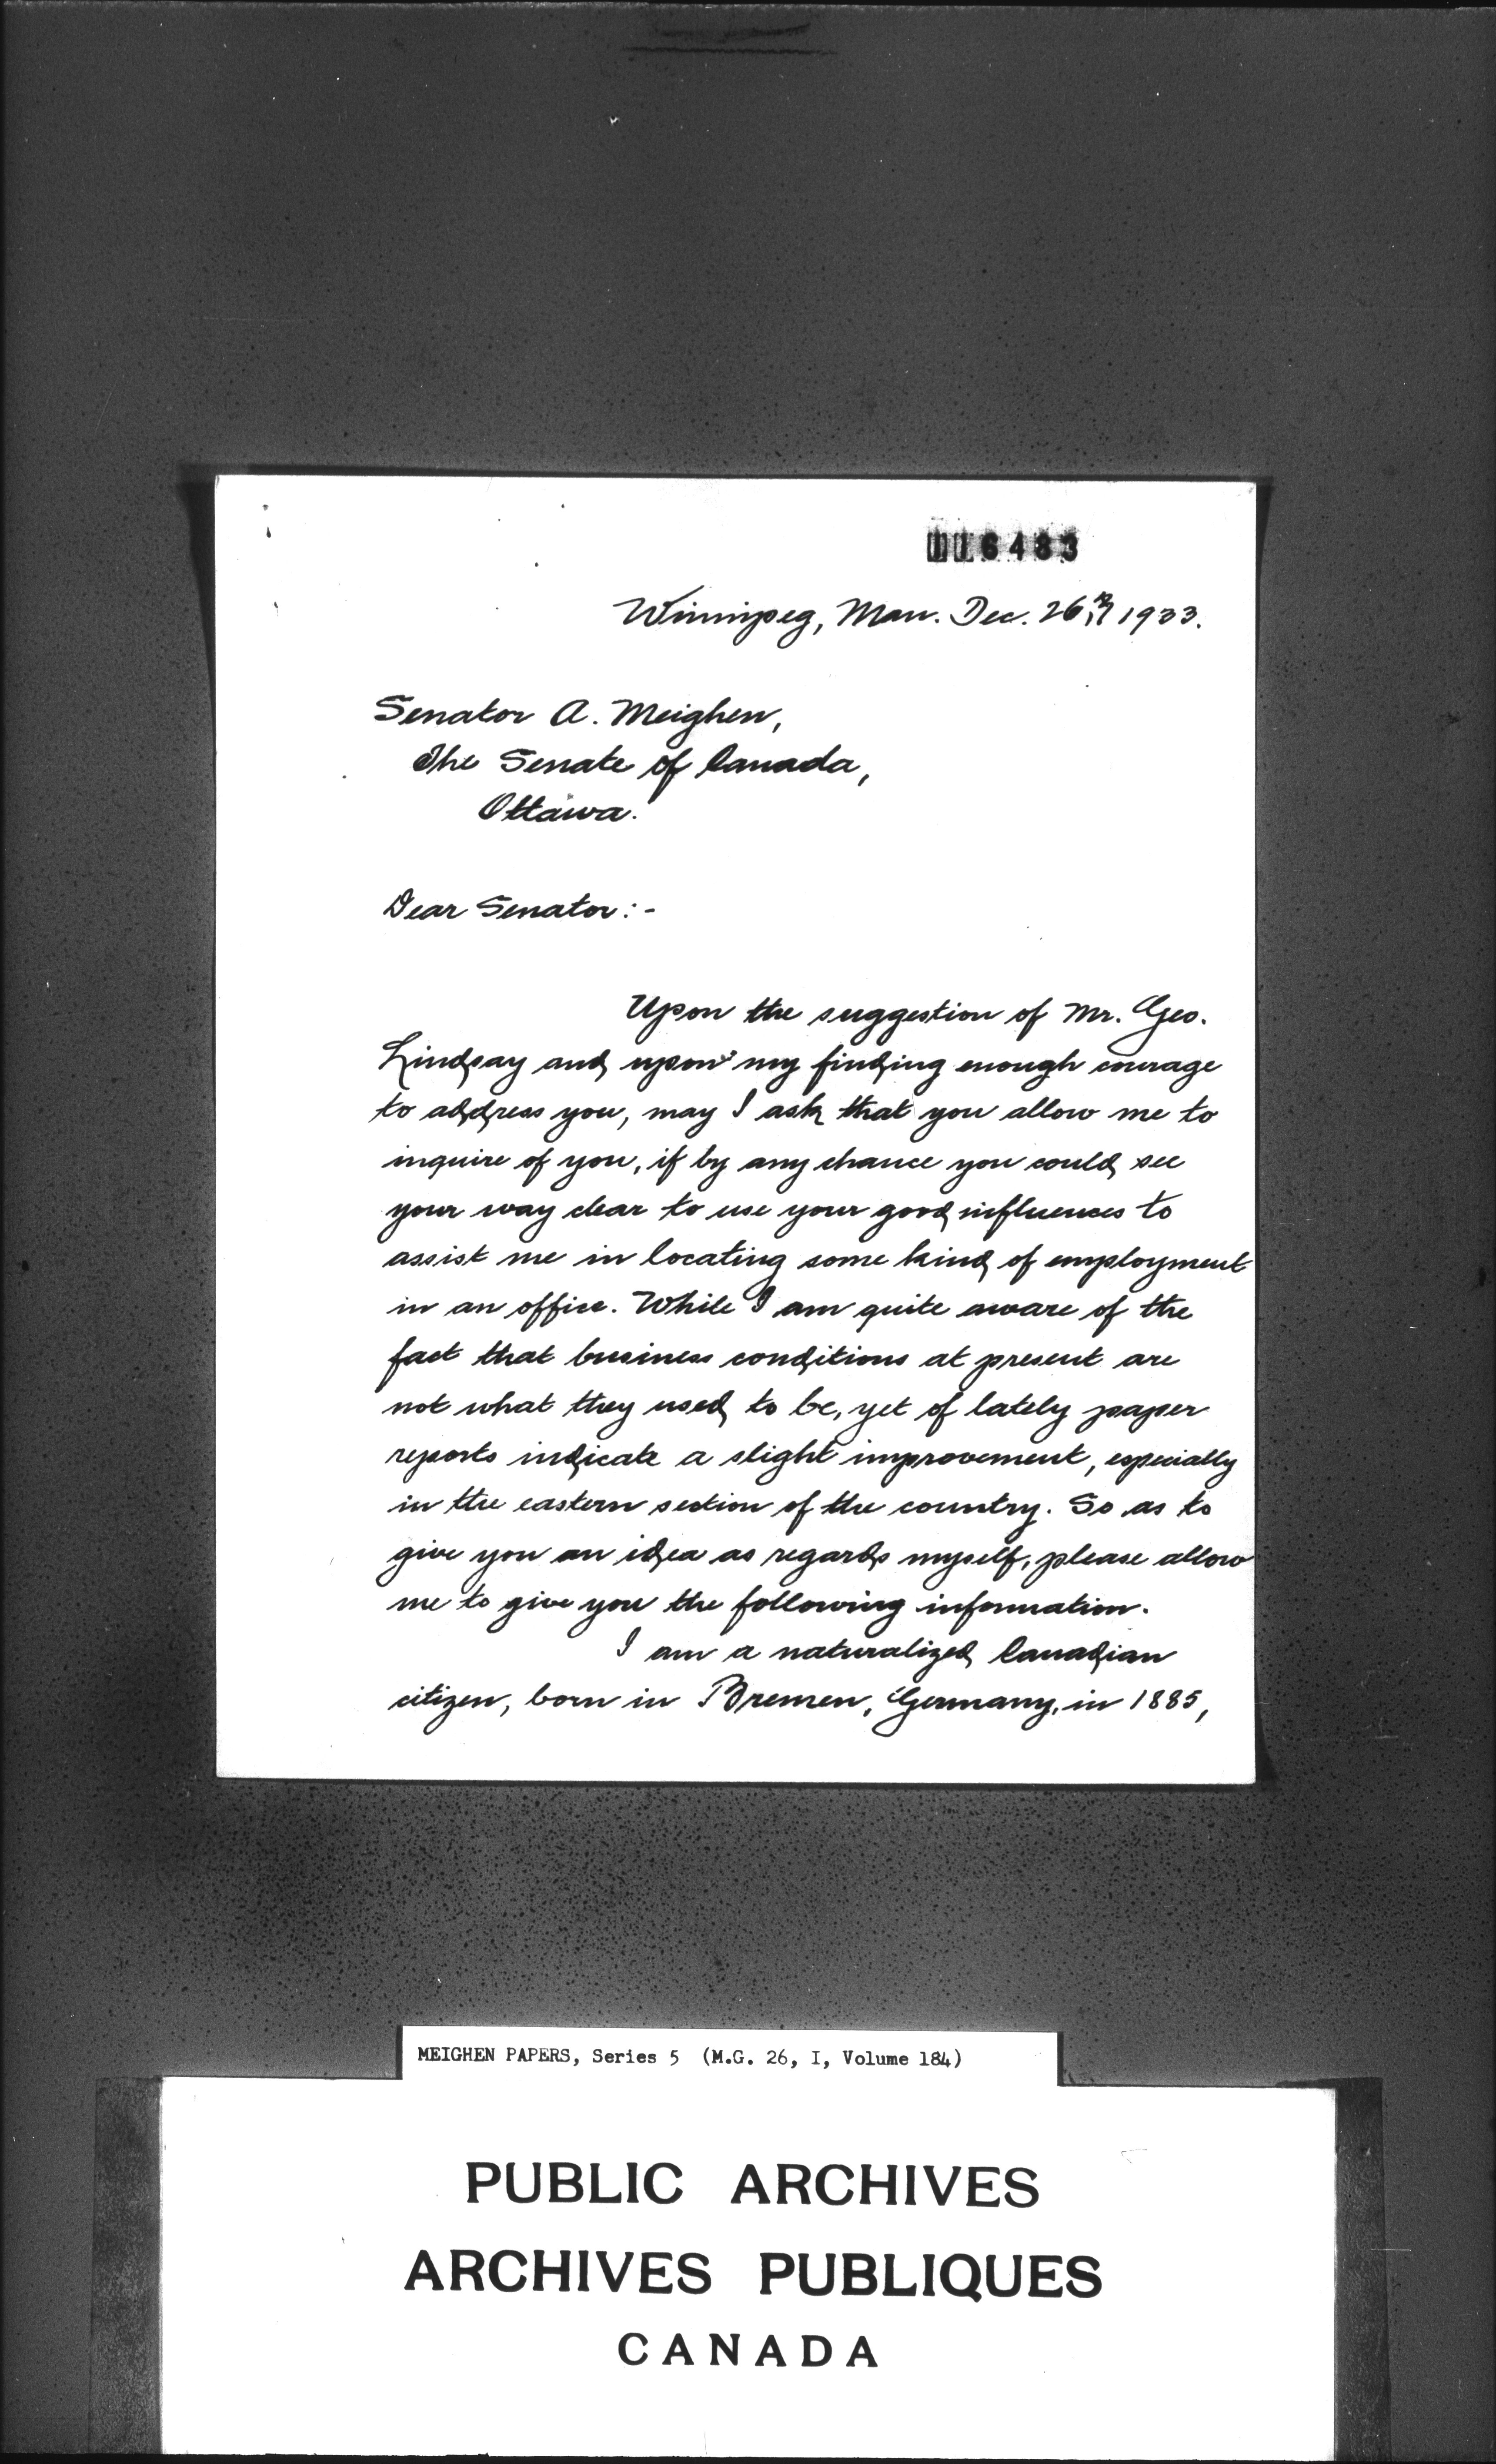 116483
Winnipeg, Man. Dec. 26th 1933.
Senator A. Meighen,
The Senate of Canada,
Ottawa.
Dear Senator:-
Upon the suggestion of Mr. Geo.
Lindsay and upon my finding enough courage
to address you, may I ask that you allow me to
inquire of you, if by any chance you could see
your way clear to use your good influences to
assist me in locating some kind of employment
in an office. While I am quite aware of the
fact that business conditions at present are
not what they used to be, yet of lately paper
reports indicate a slight improvement, especially
in the eastern section of the country. So as to
give you an idea as regards myself, please allow
me to give you the following information.
I am a naturalized Canadian
citizen, born in Bremen, Germany, in 1885,
MEIGHEN PAPERS, Series 5 (M.G. 26, I, Volume 184)
PUBLIC ARCHIVES
ARCHIVES PUBLIQUES
CANADA